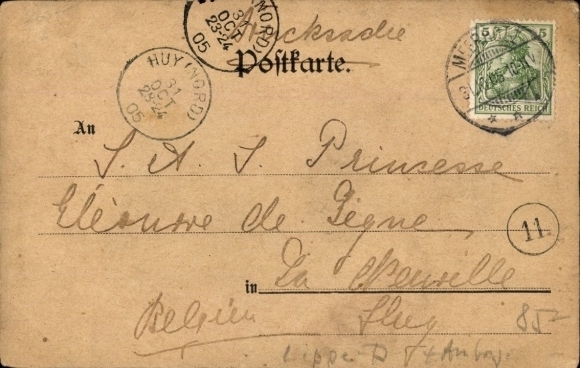 Drucksache
Postkarte.
HUY (NORD)
31
OCT
23-24
05
(NORD)
31
OCT
23-24
05
5 5
DEUTSCHES REICH
An
S. A. S. Princesse
Eléonore de Ligne
11.
in La Neuville
Belgien s/Huy
85-
Lippe-D